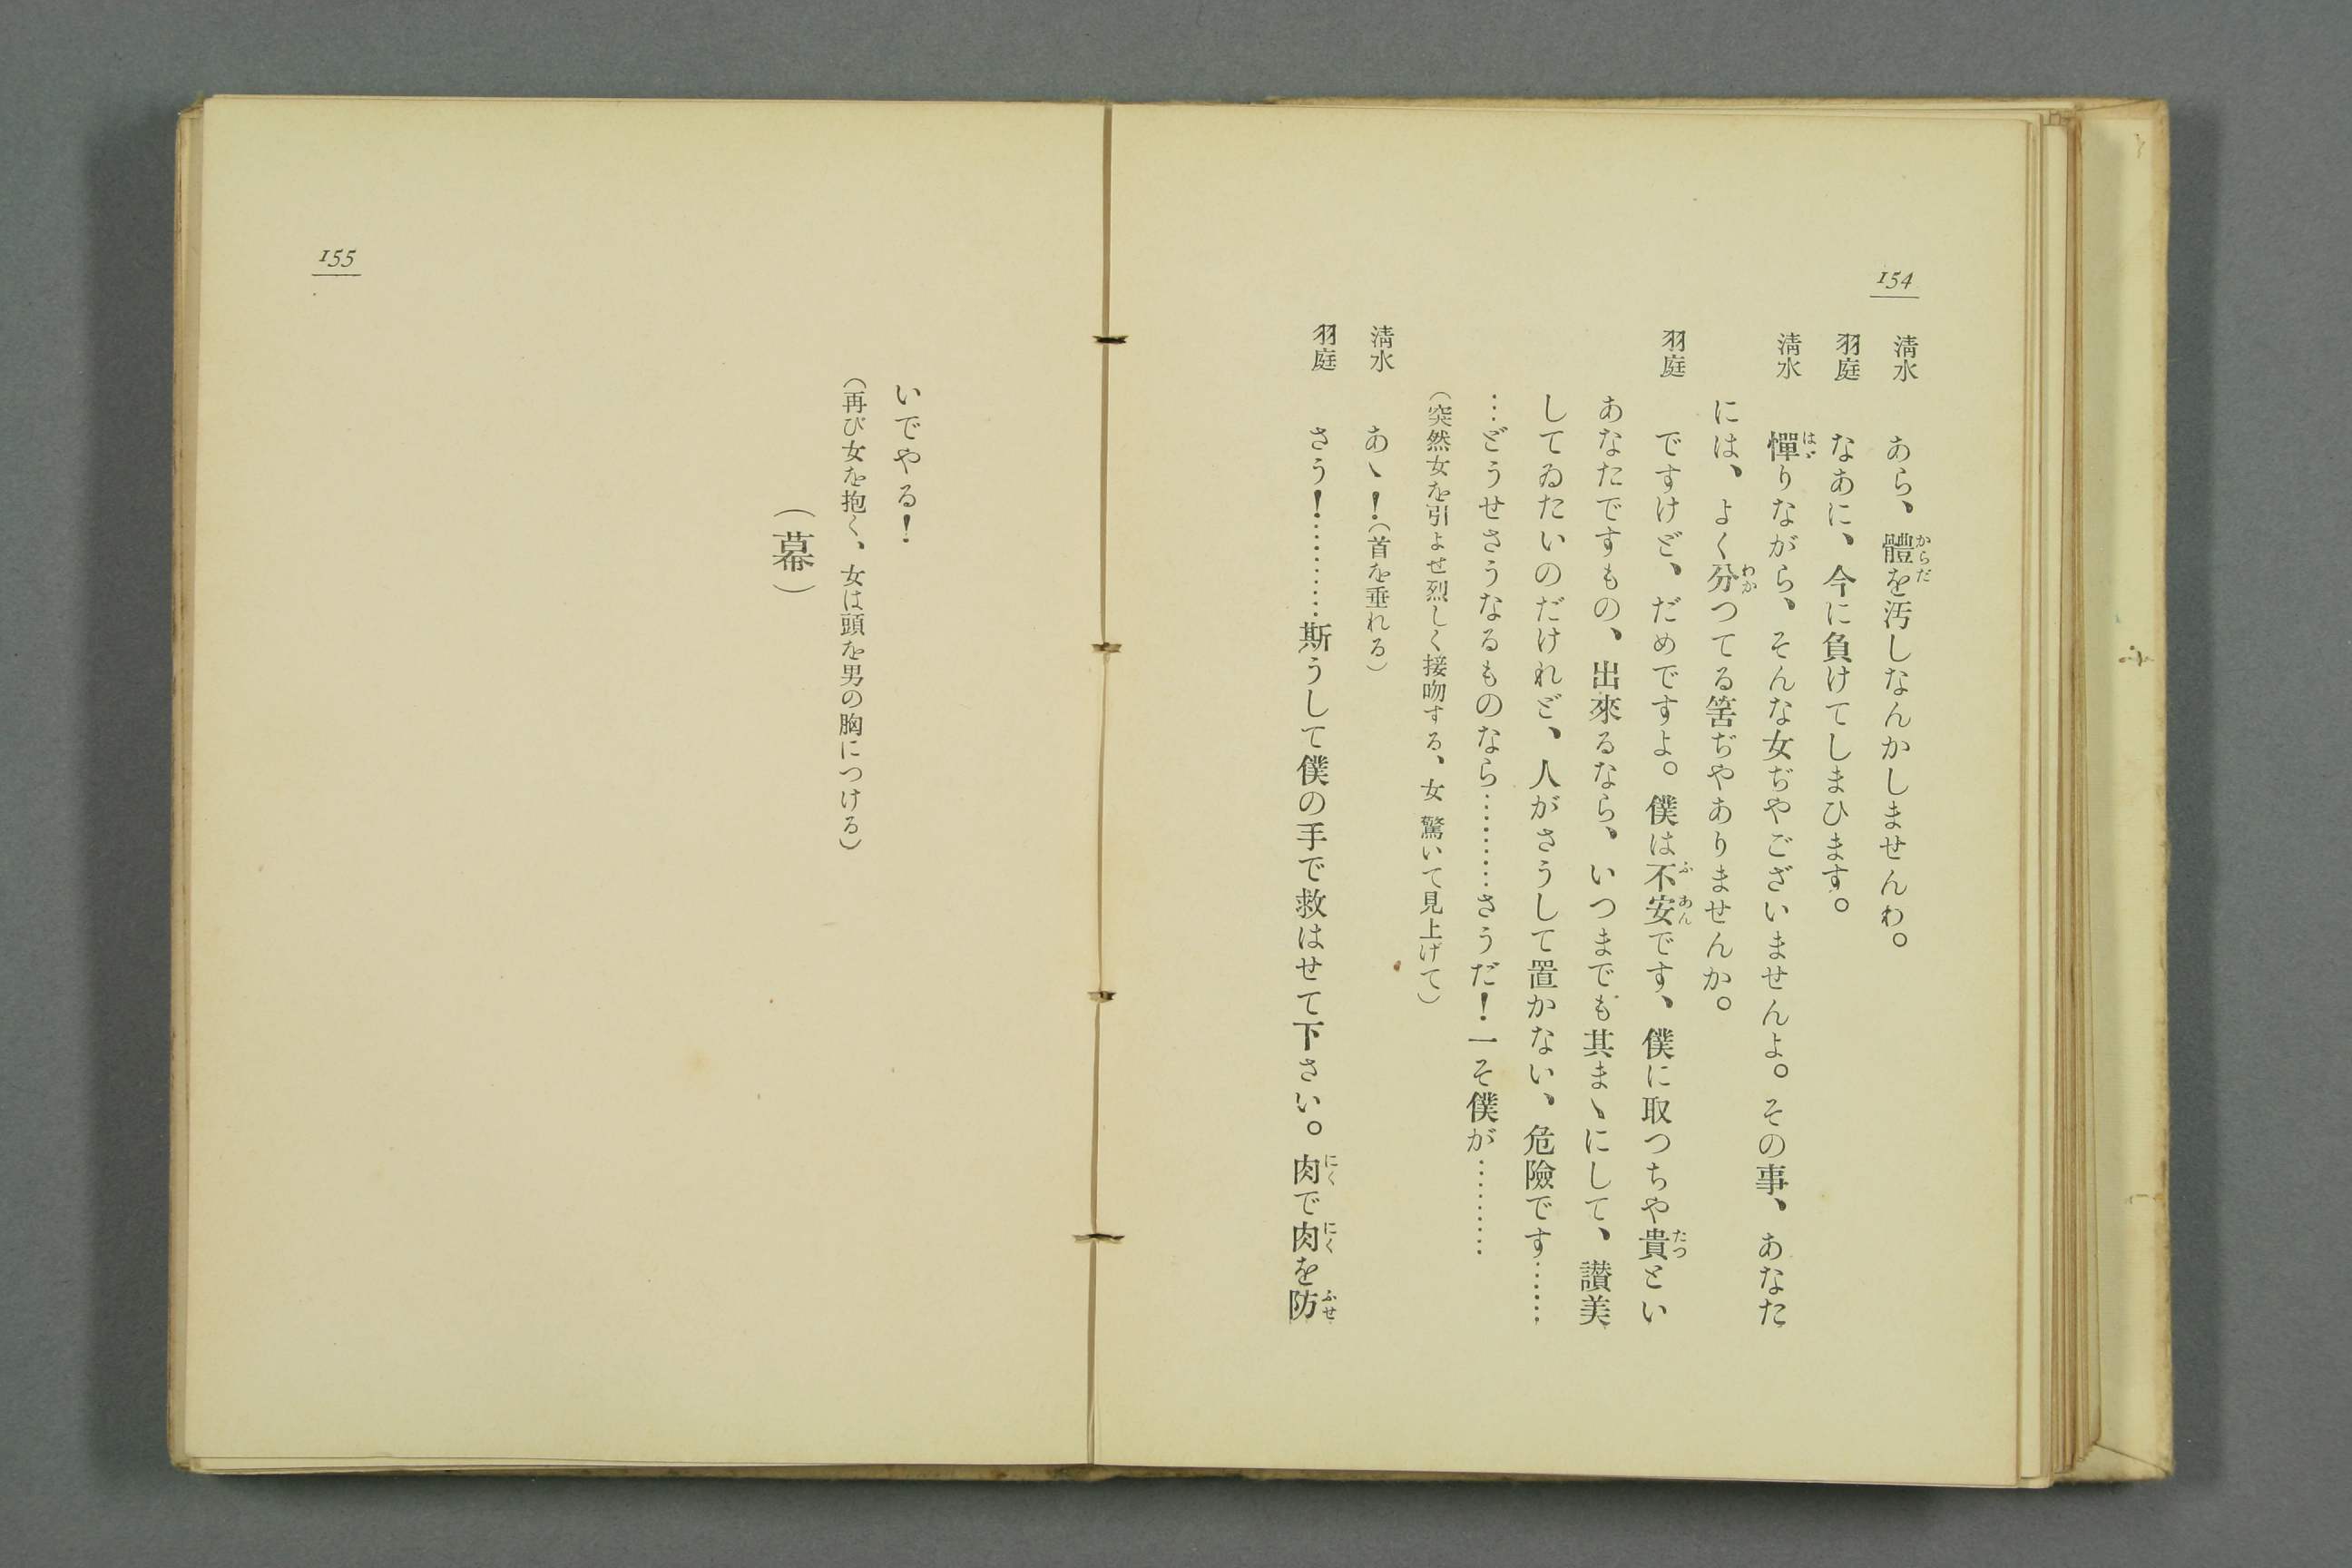 154
清水　あら、體を汚しなんかしませんわ。
羽庭　なあに、今に負けてしまひます。
清水　憚りながら、そんな女ぢやございませんよ。その事、あなた
には、よく分つてる筈ぢやありませんか。
羽庭　ですけど、だめですよ。僕は不安です、僕に取つちや貴とい
あなたですもの、出來るなら、いつまでも其まヽにして、讃美
してゐたいのだけれど、人がさうして置かない、危險です……
…どうせさうなるものなら…………さうだ！一そ僕が…………
（突然女を引よせ烈しく接吻する、女 驚いて見上げて）
清水　あヽ！（首を垂れる）
羽庭　さう！…………斯うして僕の手で救はせて下さい。肉で肉を防
155
いでやる！
（再び女を抱く、女は頭を男の胸につける）
（幕）